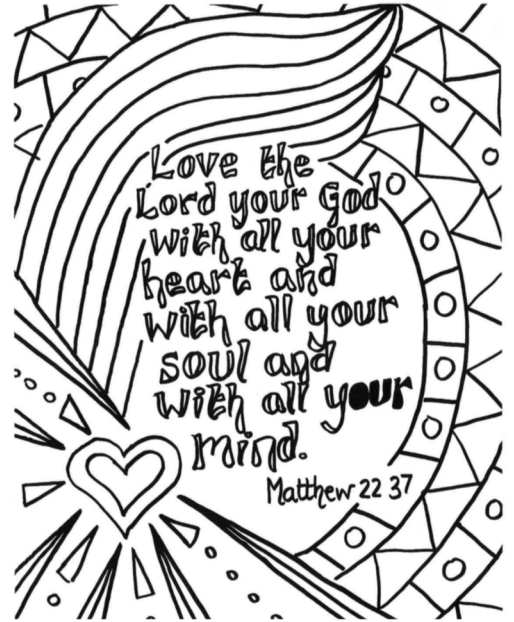 Love the
Lord your God
with all your
heart and
with all your
soul and
with all your
mind.
Matthew 22 37